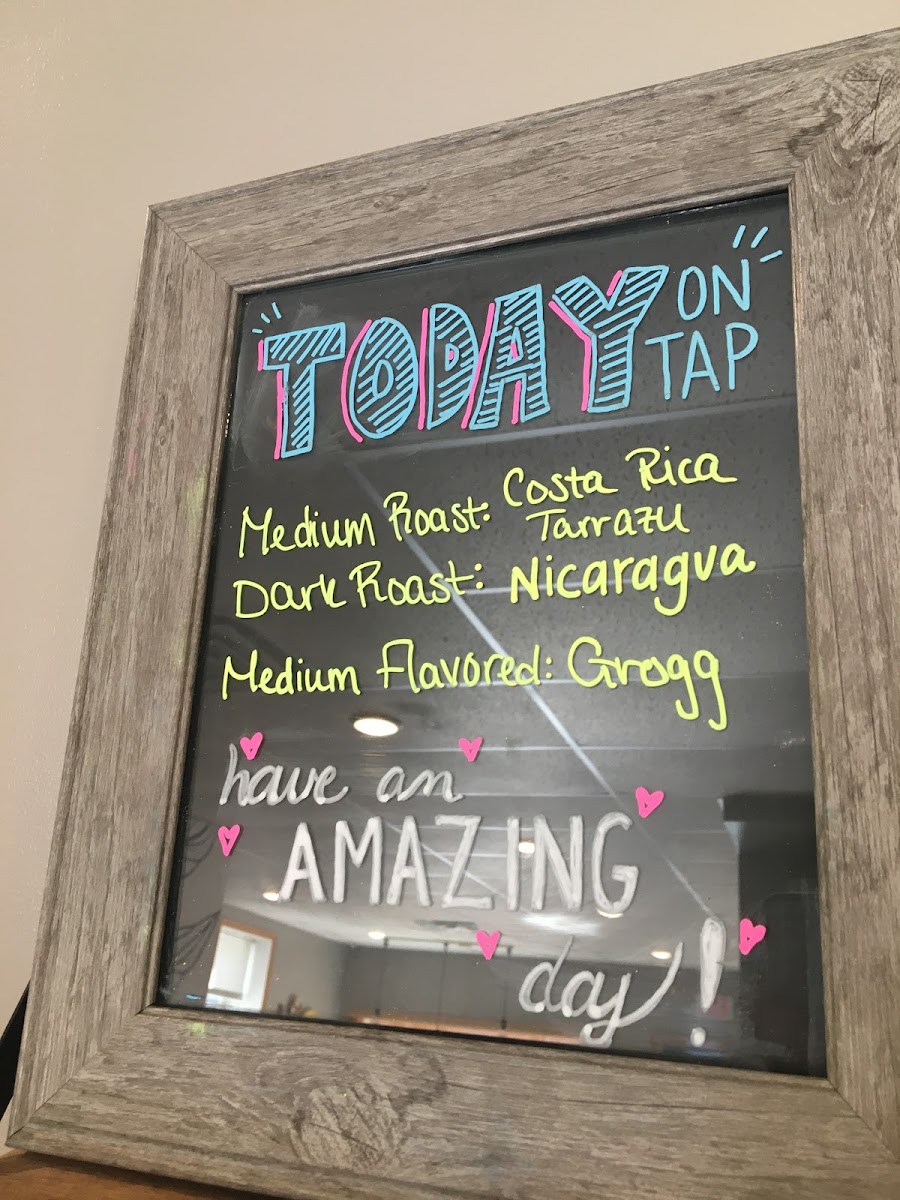 TODAY ON TAP
Medium Roast: Costa Rica
Tarrazu
Dark Roast: Nicaragua
Medium Flavored: Grogg
have an
AMAZING
day!